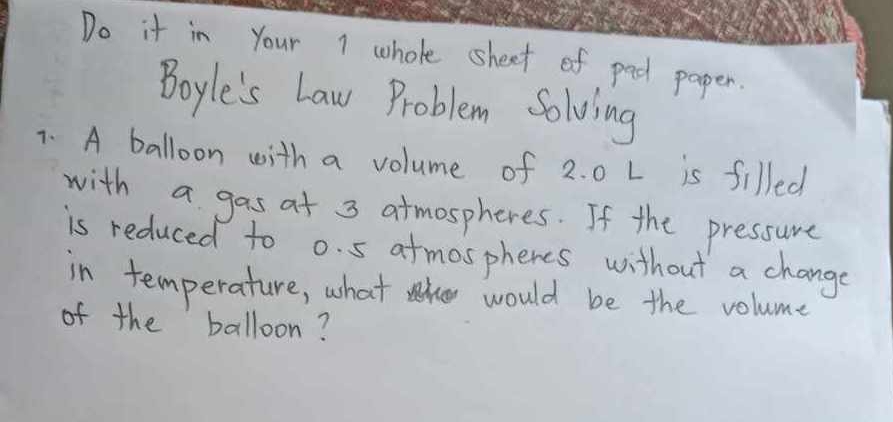 Do it in Your 1 whole sheet of pad paper.
Boyle's Law Problem Solving
1. A balloon with a volume of 2.0 L is filled
with a gas at 3 atmospheres. If the pressure
is reduced to 0.5 atmospheres without a change
in temperature, what would be the volume
of the balloon?